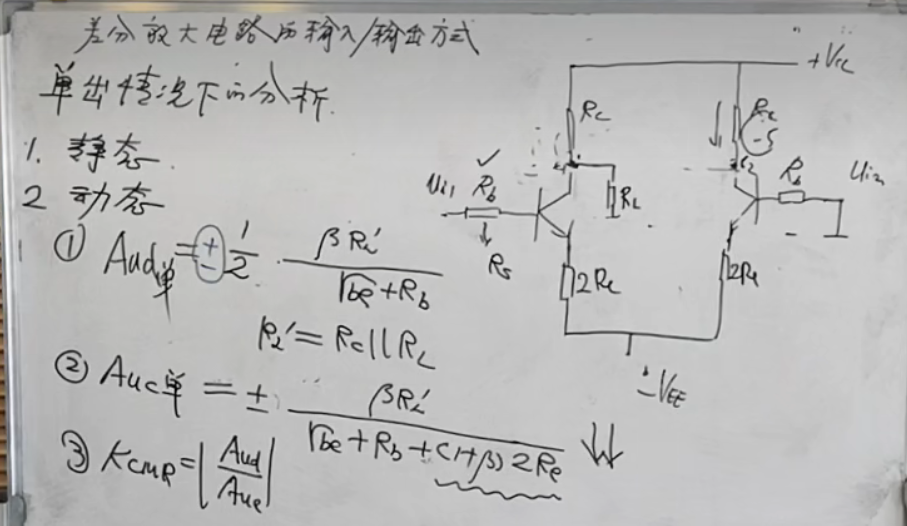 差分放大电路的输入/输出方式
单出情况下的分析.
1. 静态
2 动态
① Aud单 = ± 1/2 · βRL′ / (rbe + Rb)
RL′ = Rc || RL
② Auc单 = ± βRL′ / (rbe + Rb + (1+β) 2Re) ↓↓
③ KCMR = | Aud / Auc |
+VCC
Rc
Rc
Ui1
Rb
RL
Rb
Ui2
Rs
2Re
2Re
-VEE